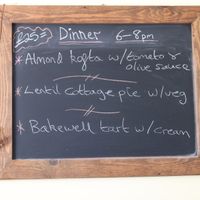 £25 Dinner 6-8pm
* Almond kofta w/ tomato &
olive sauce
* Lentil cottage pie w/ veg
* Bakewell tart w/ cream